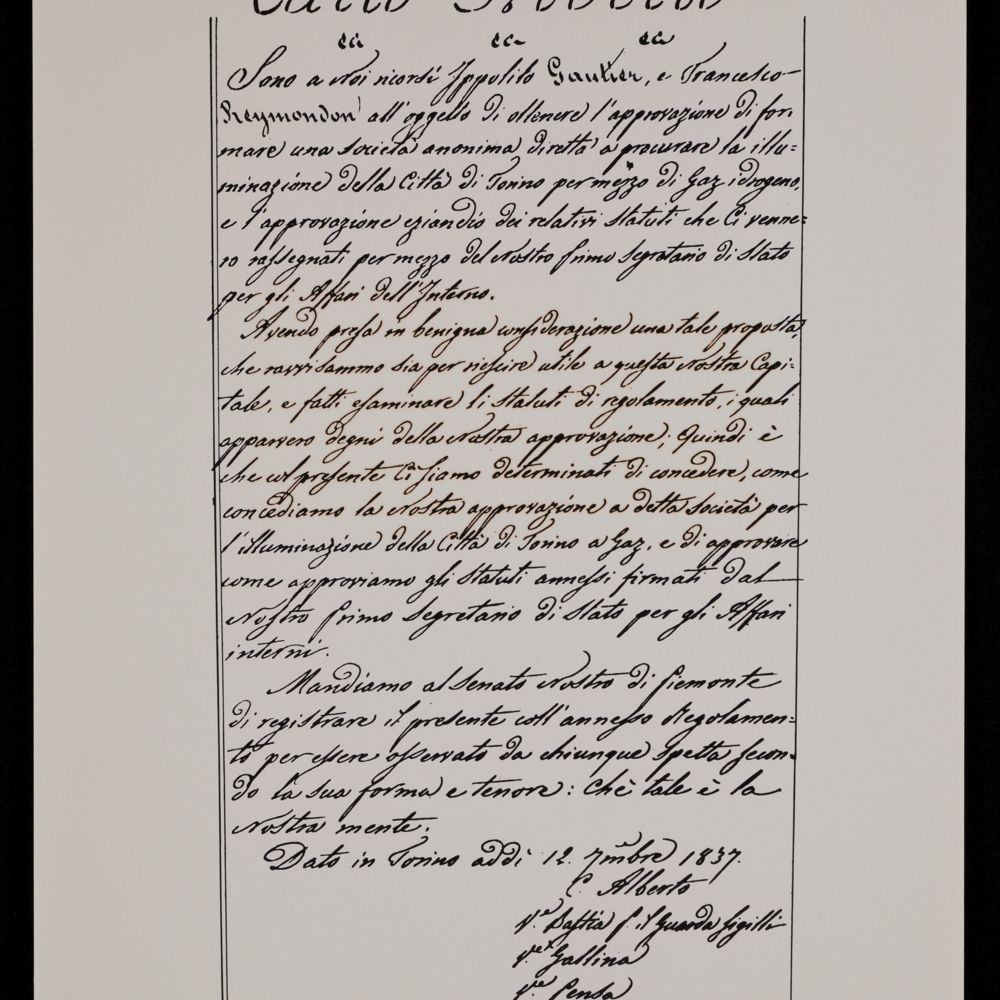 Carlo Alberto
&c &c &c
Sono a Noi ricorsi Ippolito Gautier, e Francesco
Reymondon all'oggetto di ottenere l'approvazione di for=
mare una società anonima diretta a procurare la illu=
minazione della Città di Torino per mezzo di Gaz idrogeno,
e l'approvazione eziandio dei relativi Statuti che Ci venne=
ro rassegnati per mezzo del Nostro Primo Segretario di Stato
per gli Affari dell'Interno.
Avendo presa in benigna considerazione una tale proposta,
che ravvisammo sia per riescire utile a questa Nostra Capi=
tale, e fatti esaminare li Statuti di regolamento, i quali
apparvero degni della Nostra approvazione; Quindi è
che col presente Ci siamo determinati di concedere, come
concediamo la Nostra approvazione a detta Società per
l'illuminazione della Città di Torino a Gaz, e di approvare
come approviamo gli Statuti annessi firmati dal
Nostro Primo Segretario di Stato per gli Affari
interni.
Mandiamo al Senato Nostro di Piemonte
di registrare il presente coll'annesso Regolamen=
to per essere osservato da chiunque spetta secon=
do la sua forma e tenore: Chè tale è la
Nostra mente.
Dato in Torino addì 12. 7mbre 1837.
C. Alberto
V.e Bastia p. il Guarda Sigilli
V.e Gallina
V.e Pensa